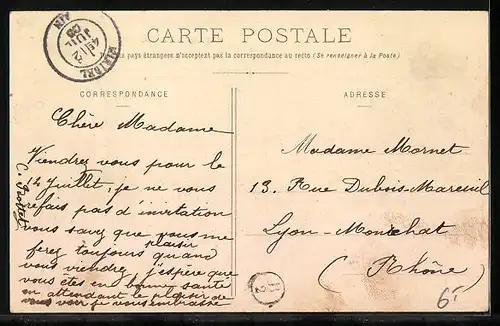 CARTE POSTALE
pays étrangers n'acceptent pas la correspondance au recto (Se renseigner à la Poste)
MIRIBEL
AIN
12
JUIL
CORRESPONDANCE
Chère Madame
Viendrez vous pour le
14 Juillet, je ne vous
refais pas d'invitation
vous savez que vous me
ferez toujours plaisir quand
vous viendrez j'espère que
vous êtes en bonne santé
en attendant le plaisir de
vous voir je vous embrasse
C.
ADRESSE
Madame Mornet
13. Rue Dubois-Mareuil
Lyon-Montchat
(Rhône)
6f